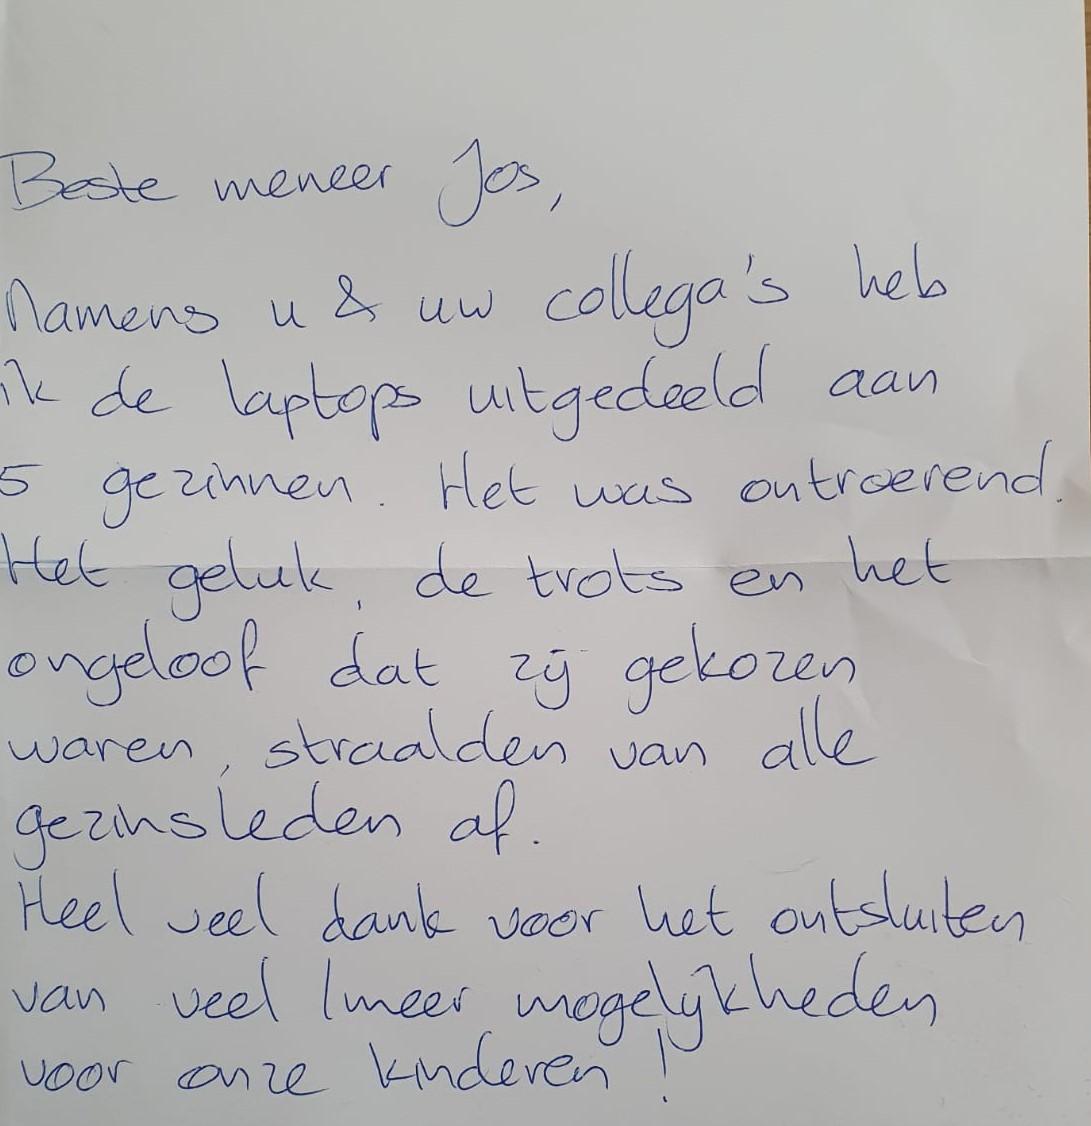 Beste meneer Jos,
Namens u & uw collega's heb
ik de laptops uitgedeeld aan
5 gezinnen. Het was ontroerend.
Het geluk, de trots en het
ongeloof dat zij gekozen
waren, straalden van alle
gezinsleden af.
Heel veel dank voor het ontsluiten
van veel / meer mogelijkheden
voor onze kinderen!